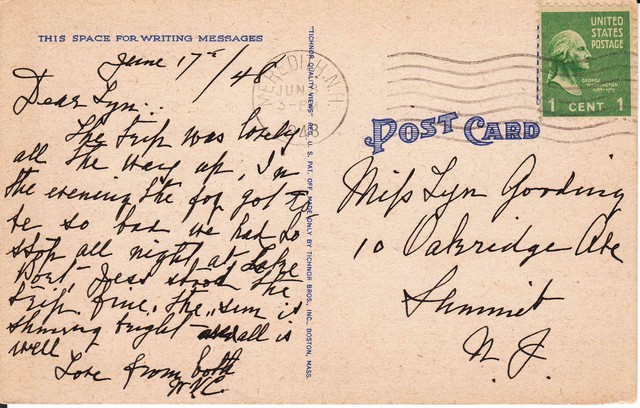 THIS SPACE FOR WRITING MESSAGES
June 17th/48
Dear Lyn..
The trip was lovely
all the way up, In
the evening the fog got to
be so bad we had to
stop all night at Lake
Port, Jess stood the
trip fine. The sun is
shinning bright all is
well
Love from both
"TICHNOR QUALITY VIEWS" REG. U. S. PAT. OFF. MADE ONLY BY TICHNOR BROS., INC., BOSTON, MASS.
MEREDITH, N.H.
JUN
3-P
48
UNITED
STATES
POSTAGE
GEORGE
WASHINGTON
1 CENT 1
POST CARD
Miss Lyn Gooding
10 Oakridge Ave
Summit
N. J.